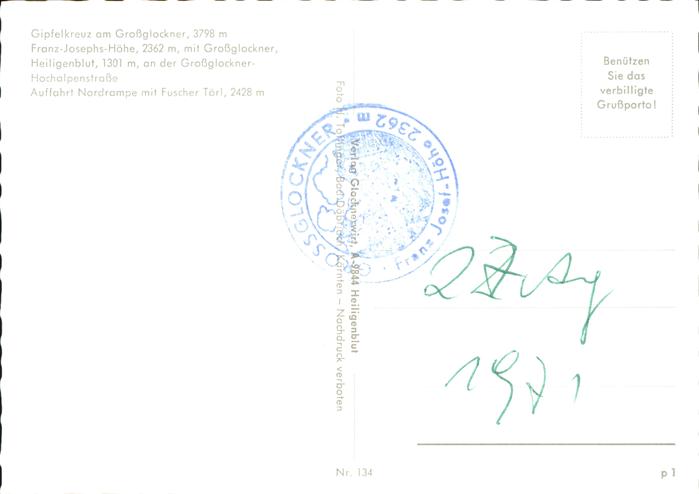 Gipfelkreuz am Großglockner, 3798 m
Franz-Josephs-Höhe, 2362 m, mit Großglockner,
Heiligenblut, 1301 m, an der Großglockner-
Hochalpenstraße
Auffahrt Nordrampe mit Fuscher Törl, 2428 m
Benützen
Sie das
verbilligte
Grußporto!
GROSSGLOCKNER
Franz Josef-Höhe 2362 m
Verlag Glocknerwirt, A-9844 Heiligenblut
Foto Kärnten – Nachdruck verboten
27 Aug
1971
Nr. 134
p 1